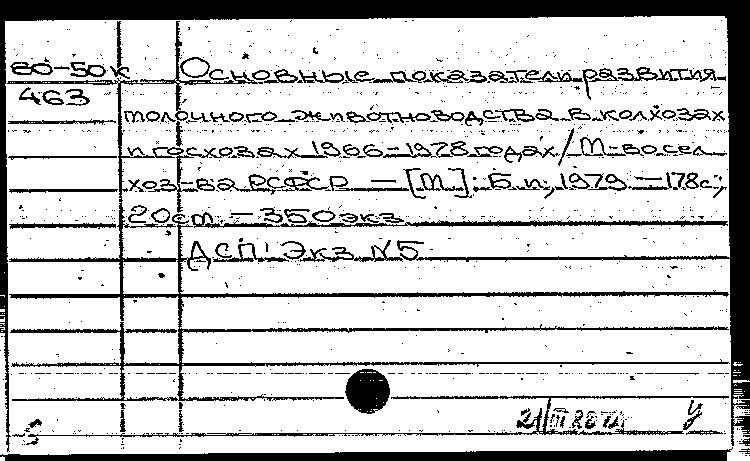 80-50к Основные показатели развития
463 молочного животноводства в колхозах
и госхозах 1966-1978 годах / М-во сел
хоз-ва РСФСР — [М.]: Б. и., 1979 — 178с.;
20см — 350экз
ДСП! Экз. N5
21/III 80
у